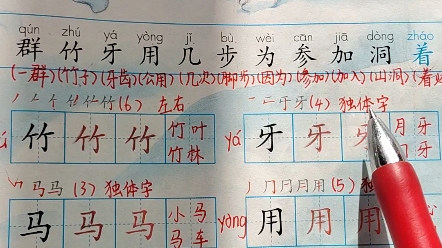 qún zhú yá yòng jǐ bù wèi cān jiā dòng zháo
群 竹 牙 用 几 步 为 参 加 洞 着
(一群)(竹子)(牙齿)(公用)(几次)(脚步)(因为)(参加)(加入)(山洞)(着
(6) 左右
(4) 独体字
竹 竹 竹 竹叶 竹林
yá 牙 牙 牙 月牙 门牙
马 马 (3) 独体字
(5) 独
马 马 马 小马 马车
yòng 用 用 用